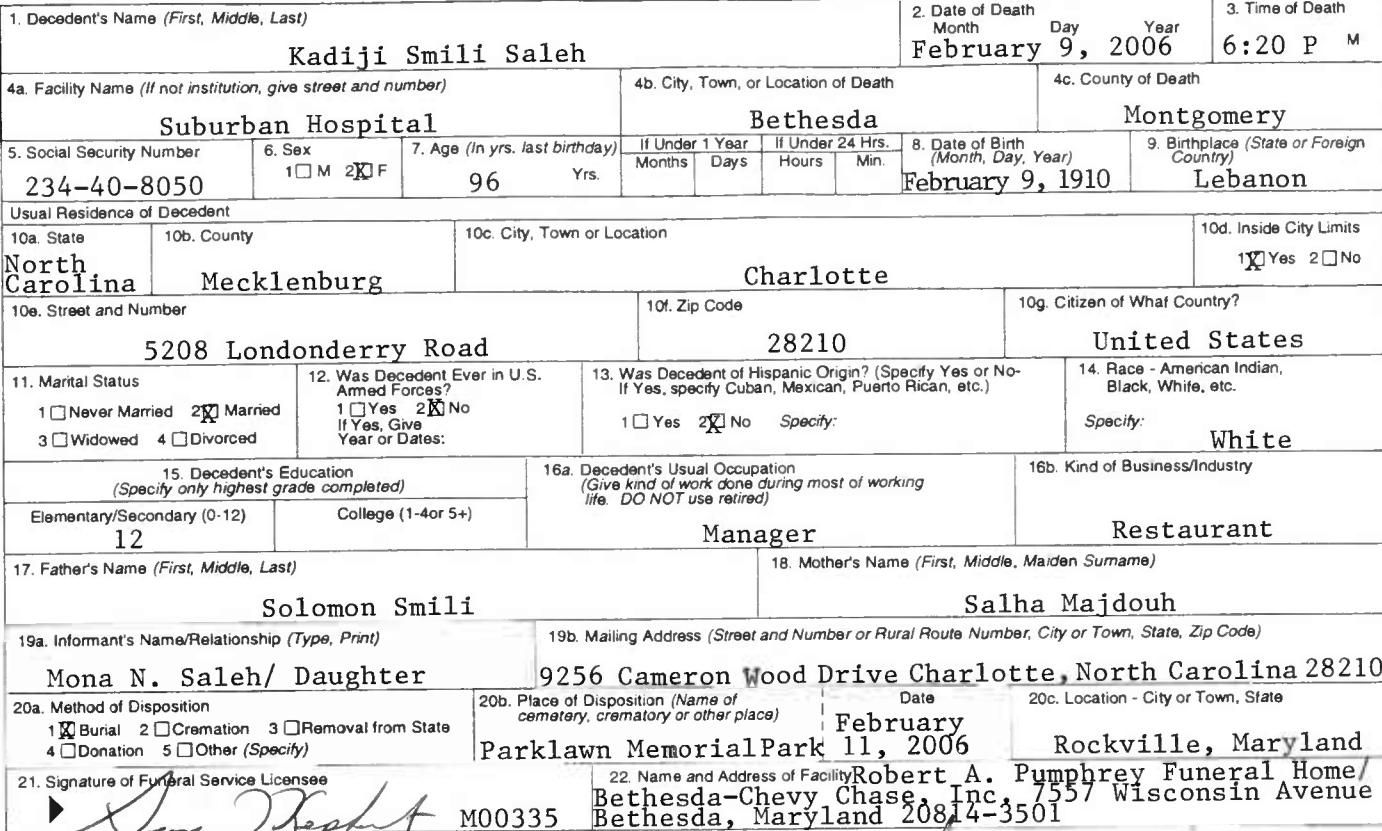 1. Decedent's Name (First, Middle, Last)
Kadiji Smili Saleh
2. Date of Death
Month Day Year
February 9, 2006
3. Time of Death
6:20 P M
4a. Facility Name (If not institution, give street and number)
Suburban Hospital
4b. City, Town, or Location of Death
Bethesda
4c. County of Death
Montgomery
5. Social Security Number
234-40-8050
6. Sex
1☐ M 2☒ F
7. Age (In yrs. last birthday)
96 Yrs.
If Under 1 Year
Months Days
If Under 24 Hrs.
Hours Min.
8. Date of Birth
(Month, Day, Year)
February 9, 1910
9. Birthplace (State or Foreign
Country)
Lebanon
Usual Residence of Decedent
10a. State
North
Carolina
10b. County
Mecklenburg
10c. City, Town or Location
Charlotte
10d. Inside City Limits
1☒ Yes 2☐ No
10e. Street and Number
5208 Londonderry Road
10f. Zip Code
28210
10g. Citizen of What Country?
United States
11. Marital Status
1☐ Never Married 2☒ Married
3☐ Widowed 4☐ Divorced
12. Was Decedent Ever in U.S.
Armed Forces?
1☐ Yes 2☒ No
If Yes, Give
Year or Dates:
13. Was Decedent of Hispanic Origin? (Specify Yes or No-
If Yes, specify Cuban, Mexican, Puerto Rican, etc.)
1☐ Yes 2☒ No Specify:
14. Race - American Indian,
Black, White, etc.
Specify:
White
15. Decedent's Education
(Specify only highest grade completed)
Elementary/Secondary (0-12)
12
College (1-4or 5+)
16a. Decedent's Usual Occupation
(Give kind of work done during most of working
life. DO NOT use retired)
Manager
16b. Kind of Business/Industry
Restaurant
17. Father's Name (First, Middle, Last)
Solomon Smili
18. Mother's Name (First, Middle, Maiden Surname)
Salha Majdouh
19a. Informant's Name/Relationship (Type, Print)
Mona N. Saleh/ Daughter
19b. Mailing Address (Street and Number or Rural Route Number, City or Town, State, Zip Code)
9256 Cameron Wood Drive Charlotte, North Carolina 28210
20a. Method of Disposition
1☒ Burial 2☐ Cremation 3☐ Removal from State
4☐ Donation 5☐ Other (Specify)
20b. Place of Disposition (Name of
cemetery, crematory or other place)
Parklawn MemorialPark
Date
February
11, 2006
20c. Location - City or Town, State
Rockville, Maryland
21. Signature of Funeral Service Licensee
M00335
22. Name and Address of Facility Robert A. Pumphrey Funeral Home/
Bethesda-Chevy Chase, Inc. 7557 Wisconsin Avenue
Bethesda, Maryland 20814-3501